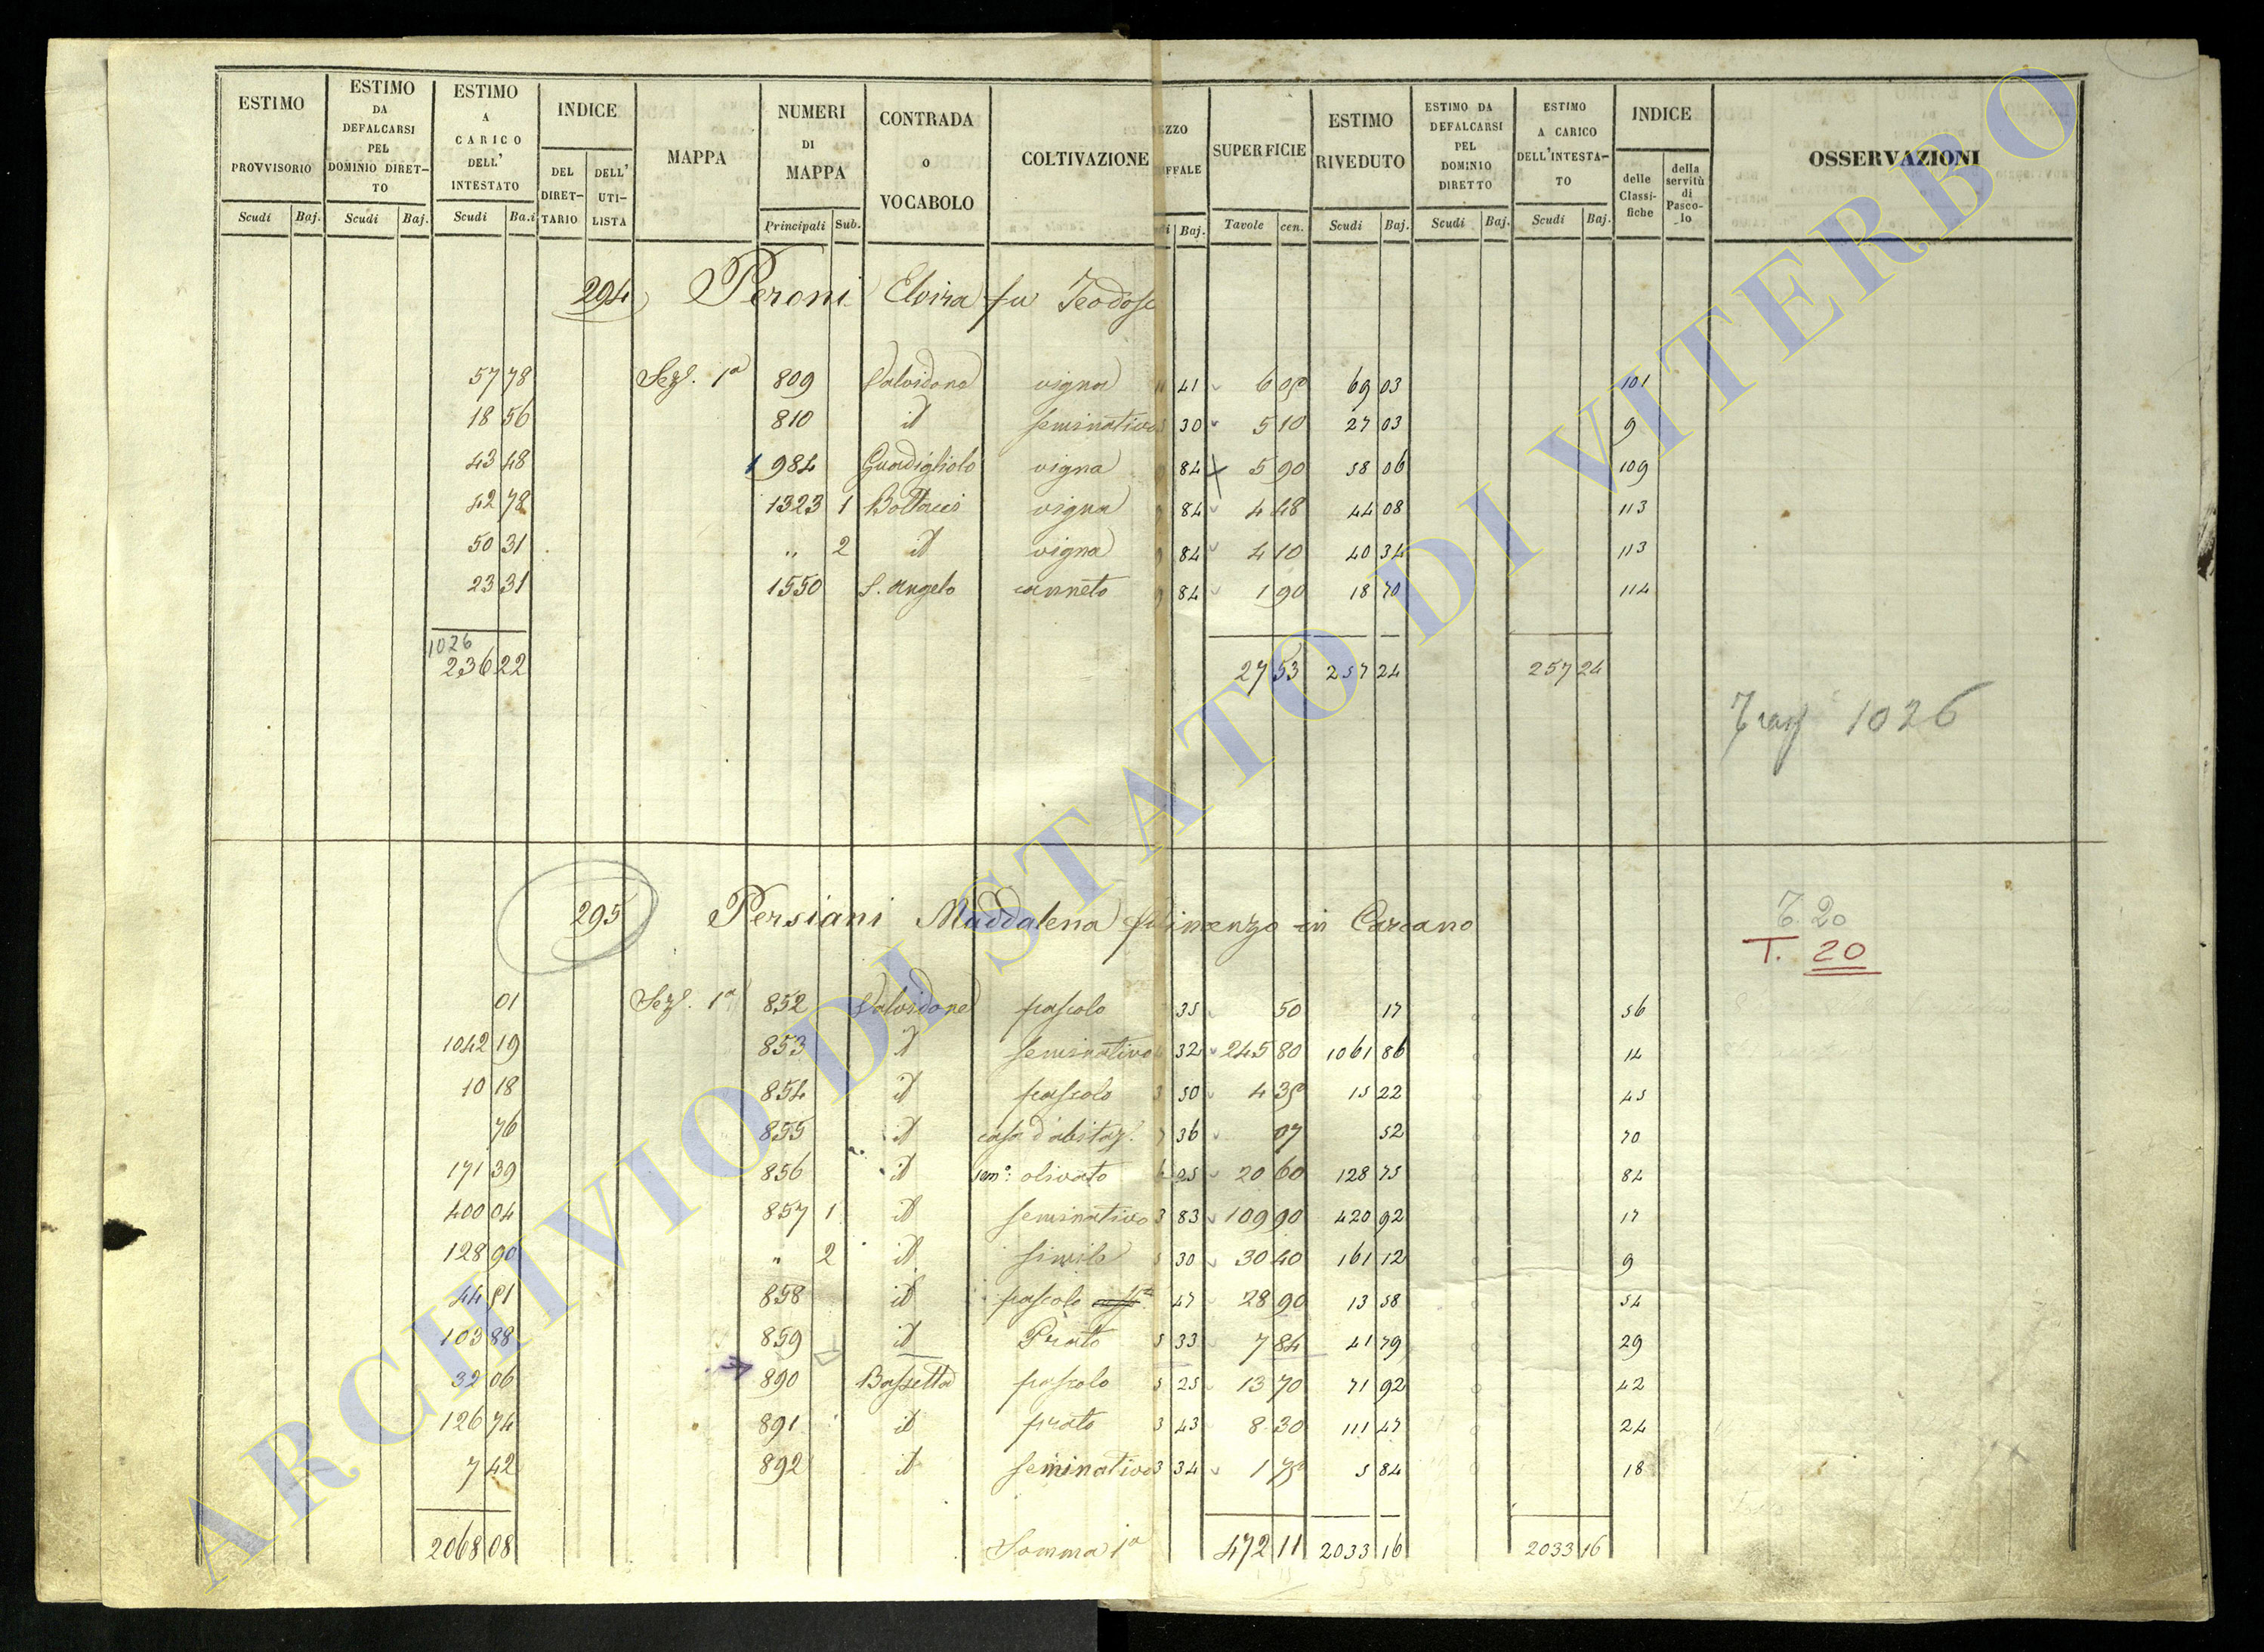 ESTIMO PROVVISORIO Scudi Baj.
ESTIMO DA DEFALCARSI PEL DOMINIO DIRET-TO Scudi Baj.
ESTIMO A CARICO DELL' INTESTATO Scudi Ba.i
INDICE DEL DIRET-TARIO DELL' UTI-LISTA
MAPPA
NUMERI DI MAPPA Principali Sub.
CONTRADA o VOCABOLO
COLTIVAZIONE
EZZO FFALE i Baj.
SUPERFICIE Tavole cen.
ESTIMO RIVEDUTO Scudi Baj.
ESTIMO DA DEFALCARSI PEL DOMINIO DIRETTO Scudi Baj.
ESTIMO A CARICO DELL'INTESTA-TO Scudi Baj.
INDICE delle Classi-fiche della servitù di Pasco-lo
OSSERVAZIONI
294 Peroni Elvira fu Teodos
57 78 Sez. 1a 809 Salvidone vigna 41 6 05 69 03 101
18 56 810 id seminativo 5 30 5 10 27 03 9
43 48 1 984 Guadigliolo vigna 9 84 5 90 58 06 109
42 78 1323 1 Bottacci vigna 9 84 4 48 44 08 113
50 31 " 2 id vigna 9 84 4 10 40 34 113
23 31 1550 S. Angelo canneto 9 84 1 90 18 70 114
1026
236 22 27 53 257 24 257 24
Trasf 1026
295 Persiani Maddalena fu incenzo in Carcano
T. 20
T. 20
01 Sez. 1a 852 Salvidone pascolo 35 50 17 56
1042 19 853 id seminativo 4 32 245 80 1061 86 14
10 18 854 id pascolo 3 50 4 35 15 22 45
76 855 id casa d'abitaz. 7 36 07 52 70
171 39 856 id sem.o olivato 6 25 20 60 128 75 84
400 04 857 1 id seminativo 3 83 109 90 420 92 17
128 90 " 2 id simile 5 30 30 40 161 12 9
44 51 858 id pascolo 47 28 90 13 58 54
103 88 859 id Prato 5 33 7 84 41 79 29
32 06 890 Bassetta pascolo 5 25 13 70 71 92 42
126 74 891 id prato 3 43 8 30 111 47 24
7 42 892 id seminativo 3 34 1 75 5 84 18
2068 08 Somma 1a 472 11 2033 16 2033 16
ARCHIVIO DI STATO DI VITERBO